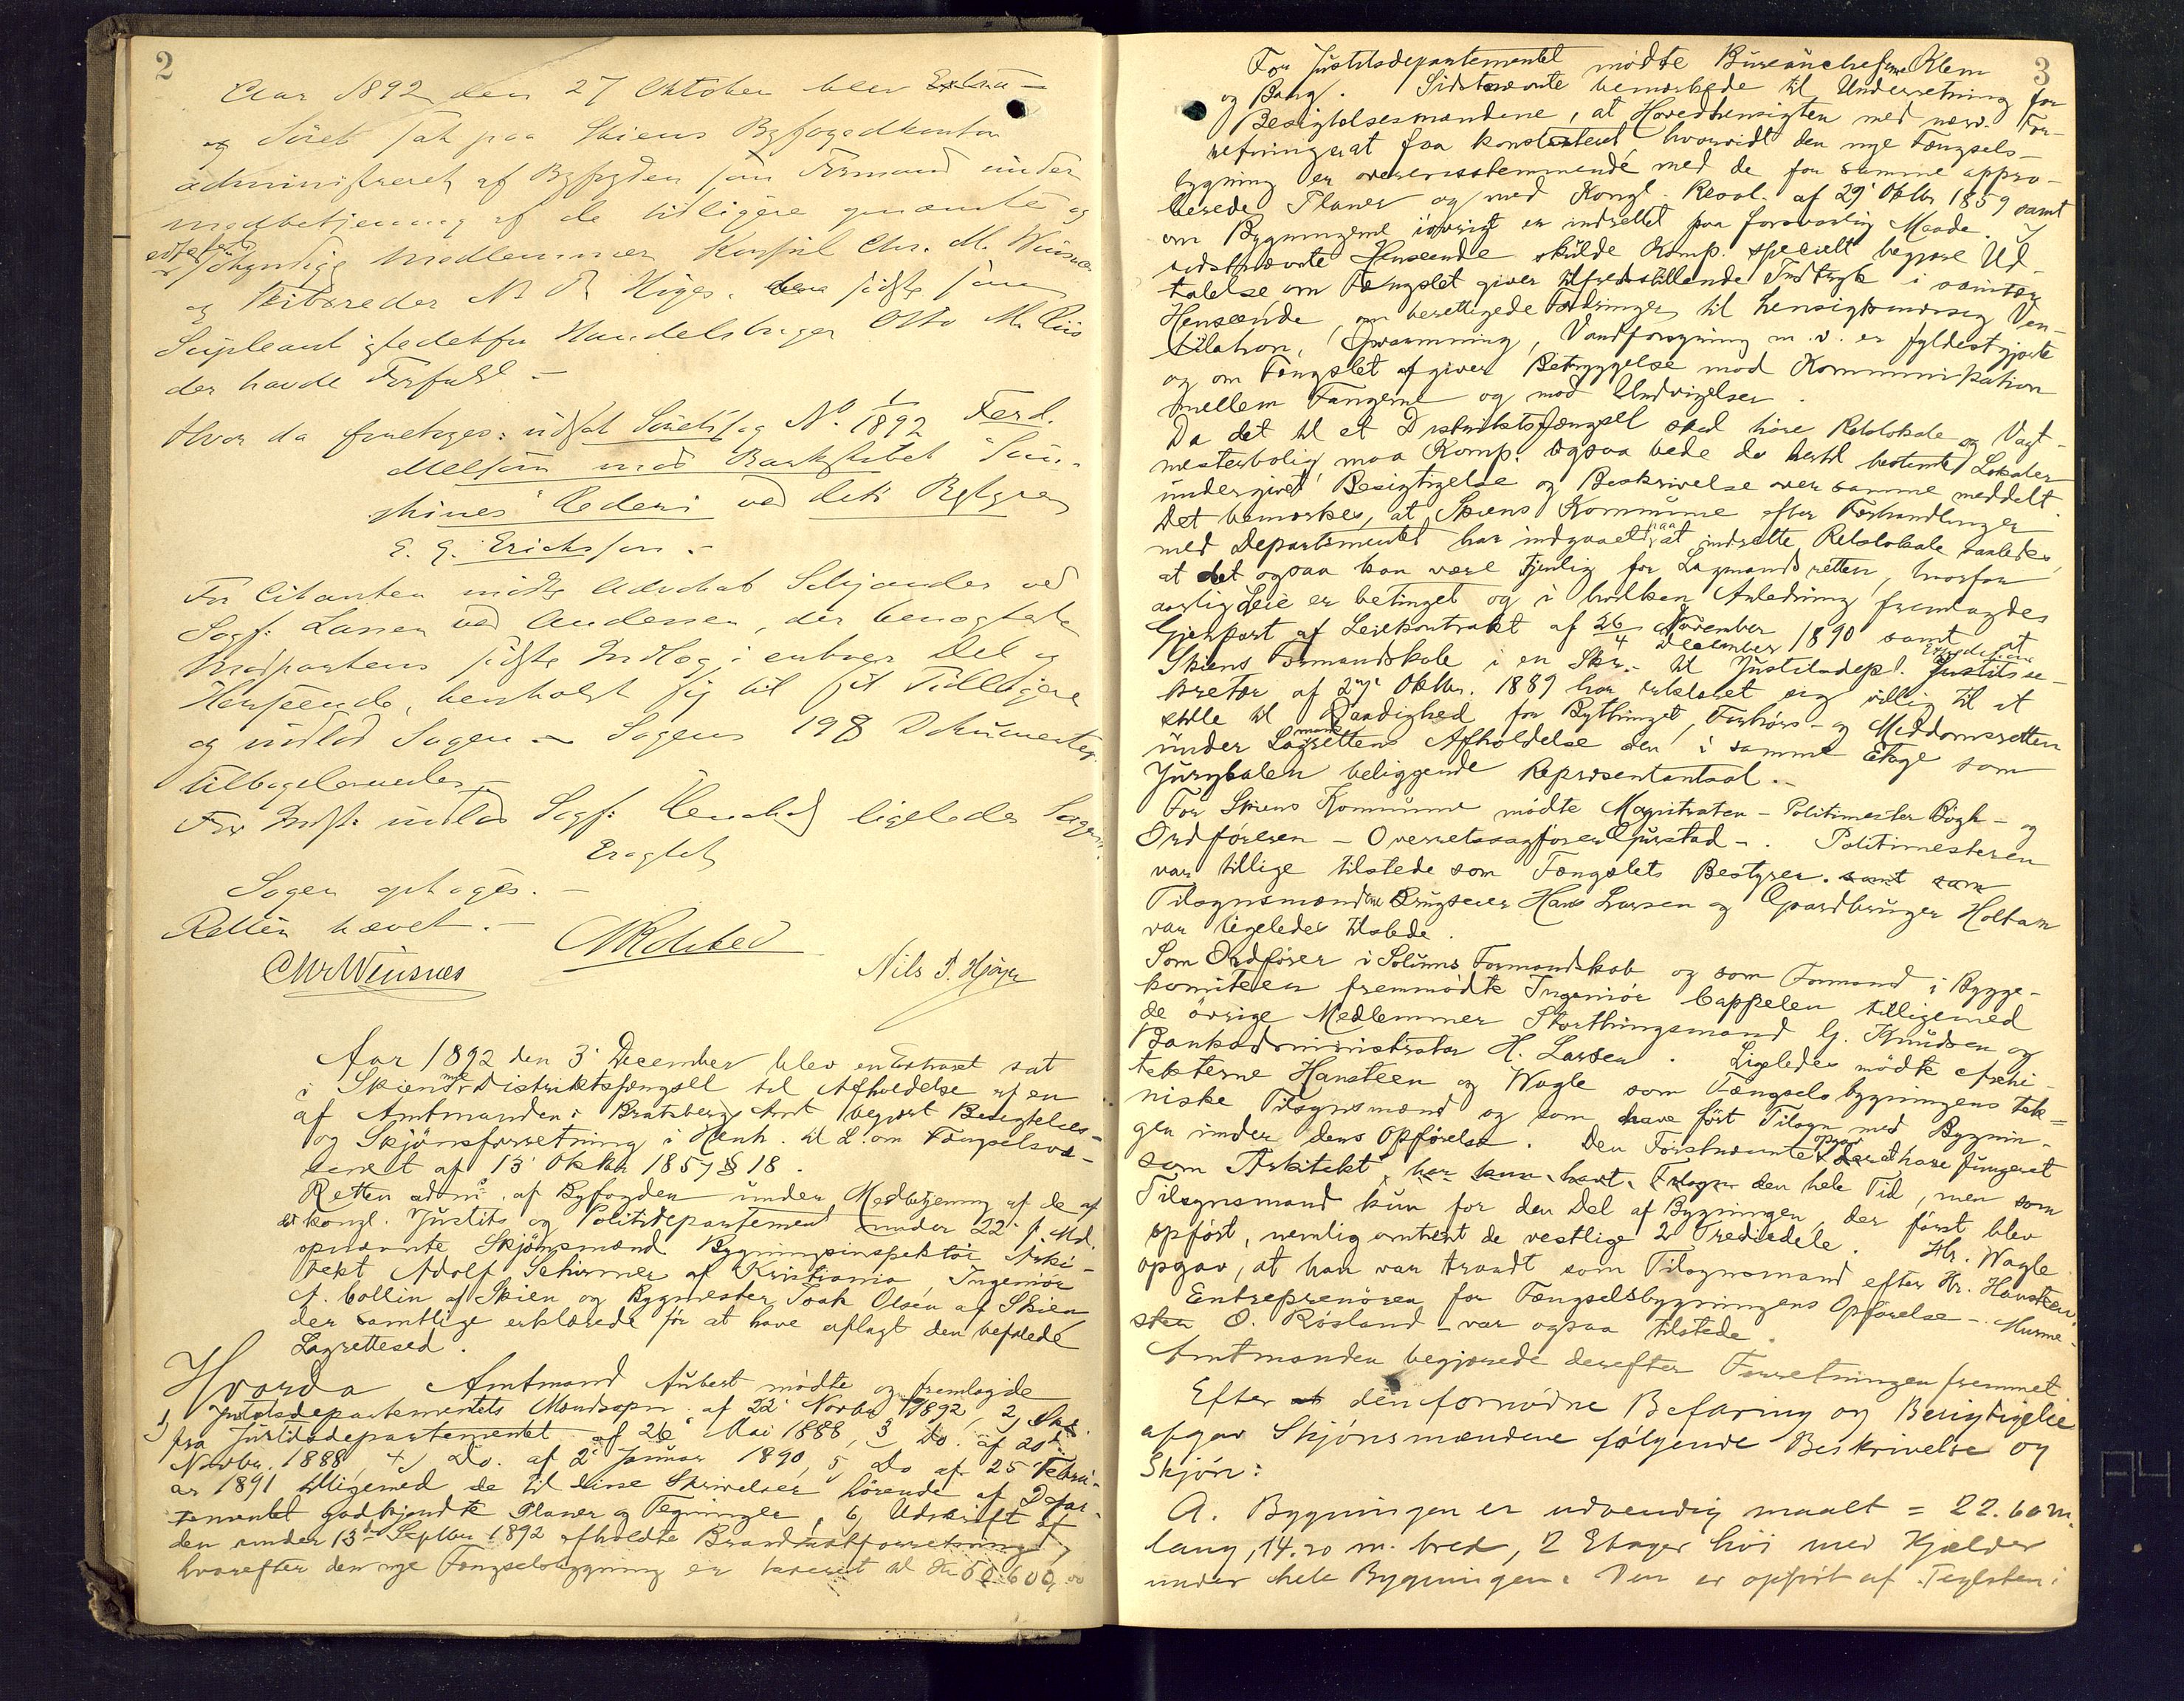 2
Aar 1892 den 27 Oktober blev Extra-
og Söret sat paa Skiens Byfogedkontor
administreret af Byfogden som Formand under
medbetjening af de tidligere opnævnte og
søkyndige Medlemmer Konsul Chr. M. Wiisnes
og Skibsreder N. P. Höyer, den sidste som
Supleant istedetfor Handelsborger Otto M.
der havde Forfald. -
Hvor da foretoges: udsat Söretssag No. 1/1892 Ferd.
Mellsom mod Barkskibet "Sun-
shines" Rederi ved dets Bestyrer
E. G. Erichsen. -
For Citanten mødte Advokat Schjander ved
Sagf: Larsen ved Andersen, der benegtede
Modpartens sidste Indlæg i enhver Del og
Henseende, henholdt sig til sit Tidligere
og indlod Sagen - Sagens 198 Dokumenter
tilbageleveredes. -
For Indst: indlod Sagf: ligeledes Sagen.
Eragtet
Sagen optages. -
Retten hævet. -
Chr Wiisnes
Nils P. Höyer
Aar 1892 den 3' December blev en Extraret sat
i Skiens nye Distriktsfængsel til Afholdelse af en
af Amtmanden i Bratsberg Amt begjært Besigtelses-
og Skjönsforretning i Henh. til L. om Fængselsvæ-
senet af 13' Oktbr 1857 § 18.
Retten adm. af Byfogden under Medbetjening af de af
det kongl. Justits og Politidepartement under 22' f. Md.
opnævnte Skjönsmænd Bygningsinspektör Arki-
tekt Adolf Schirmer af Kristiania, Ingeniör
A. Collin af Skien og Bygmester Isak Olsen af Skien
der samtlige erklærede för at have aflagt den befalede
Lagrettesed.
Hvorda Amtmand Aubert mødte og fremlagde
1) Justitsdepartementets Mandsopn. af 22' Novbr 1892, 2, Skr.
fra Justitsdepartementet af 26' Mai 1888, 3 Do. af 20de
Novbr. 1888, 4, Do. af 2' Januar 1890, 5, Do af 25' Febru-
ar 1891 tilligemed de til disse Skrivelser hörende af Depar-
tementet godkjendte Planer og Tegninger, 6, Udskrift af
den under 13de Septbr 1892 afholdte Brandtaxtforretning,
hvorefter den nye Fængselsbygning er taxeret til Kr 60.600,00
3
For Justitsdepartementet mødte Bureaucheferne Klem
og Bang. Sidstnævnte bemærkede til Underretning for
Besigtelsesmændene, at Hovedhensigten med nærv. For-
retning er at faa konstateret hvorvidt den nye Fængsels-
bygning er overensstemmende med de for samme appro-
berede Planer og med Kongl. Resol. af 29' Oktbr 1859 samt
om Bygningerne iøvrigt er indrettet paa forsvarlig Maade. I
sidstnævnte Henseende skulde Komp. specielt begjære Ud-
talelse om Fængslet giver tilfredsstillende Indtryk i sanitær
Henseende, om berettigede Fordringer til hensigtsmæssig Ven-
tilation, Opvarmning, Vandforsyning m. v. er fyldestgjorte
og om Fængslet afgiver Betryggelse mod Kommunikation
mellem Fangerne og mod Undvigelser.
Da det til et Distriktsfængsel skal höre Retslokale og Vagt-
mesterbolig, maa Komp. ogsaa bede de hertil bestemte Lokaler
undergivet Besigtigelse og Beskrivelse over samme meddelt.
Det bemærkes, at Skiens Kommune efter Forhandlinger
med Departementet har indgaaet paa at indrette Retslokale saaledes,
at det ogsaa kan være tjenlig for Lagmandsretten, hvorfor
aarlig Leie er betinget og i hvilken Anledning fremlagdes
Gjenpart af Leiekontrakt af 26 November / 4 December 1890 samt at
Skiens Formandskab i en Skr. til Justitsdep. Expeditions
kretær af 2' Oktbr. 1889 har erklæret sig villig til at
stille til Raadighed for Bythinget, Forhörs- og Meddomsretten
under Lagmandsrettens Afholdelse den i samme Etage som
Jurysalen beliggende Repræsentantsal. -
For Skiens Kommune mødte Magistraten - Politimester Bögh - og
Ordföreren - Overretssagförer Gjerstad - . Politimesteren
var tillige tilstede som Fængslets Bestyrer.
Tilsynsmændene Brugseier Hans Larsen og Gaardbruger Holtan
var ligeledes tilstede.
Som Ordförer i Solums Formandskab og som Formand i Bygge-
komiteen fremmödte Ingeniör Cappelen tilligemed
de övrige Medlemmer Storthingsmand G. Knudsen og
Bankadministrator H. Larsen. Ligeledes mødte Arki-
tekterne Hansteen og Wagle som Fængselsbygningens tek-
niske Tilsynsmænd og som have fört Tilsyn med Bygnin-
gen under dens Opförelse. Den Förstnævnte opgav at have fungeret
som Arkitekt den hele Tid, men som
Tilsynsmand kun for den Del af Bygningen, der först blev
opfört, nemlig omtrent de vestlige 2 Trediedele. Hr. Wagle
opgav, at han var traadt som Tilsynsmand efter Hr. Hansteen.
Entreprenören for Fængselsbygningens Opförelse - Murme-
ster O. Røsland - var ogsaa tilstede.
Amtmanden begjærede derefter Forretningen fremmet
Efter den fornødne Befaring og Besigtigelse
afgav Skjönsmændene følgende Beskrivelse og
Skjön:
A. Bygningen er udvendig maalt = 22.60 m.
lang, 14.20 m. bred, 2 Etager höi med Kjælder
under hele Bygningen. Den er opfört af Teglsten i